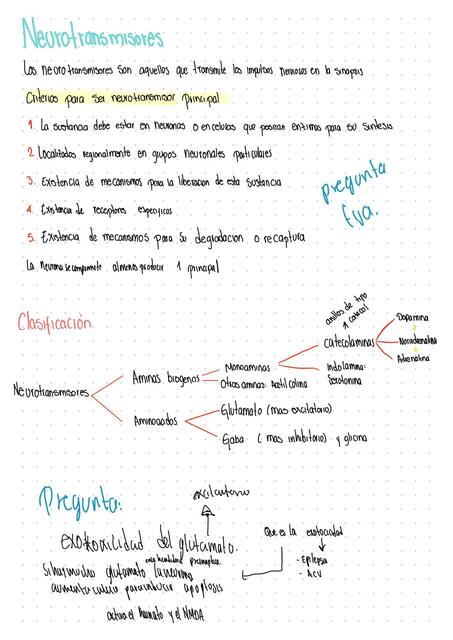 Neurotransmisores
Los neurotransmisores son aquellos que transmite los impulsos nerviosos en la sinapsis
Criterios para ser neurotransmisor principal
1. La sustancia debe estar en neuronas o en celulas que posean enzimas para su sintesis
2 Localizados regionalmente en grupos neuronales particulares
3. Existencia de mecanismos para la liberacion de esta sustancia
pregunta
Eva.
4. Existencia de receptores especificos
5. Existencia de mecanismos para su degradacion o recaptura
La neurona se compromete al menos producir 1 principal
Clasificación
anillos de tipo
1 catecol
Neurotransmisores
Aminas biogenas
Monoaminas
Catecolaminas
Dopamina
Noradrenalina
Adrenalina
Indolamina:
Serotonina
Otras aminas: acetilcolina
Aminoacidos
Glutamato (mas excitatorio)
Gaba (mas inhibitorio) y glicina
Pregunta:
excitatorio
exotoxicidad del glutamato.
Que es la exotoxicidad
- Epilepsia
- ACV
Si hay mucho glutamato la neurona
aumenta calcio para inducir apoptosis
activa el kainato y el NMDA